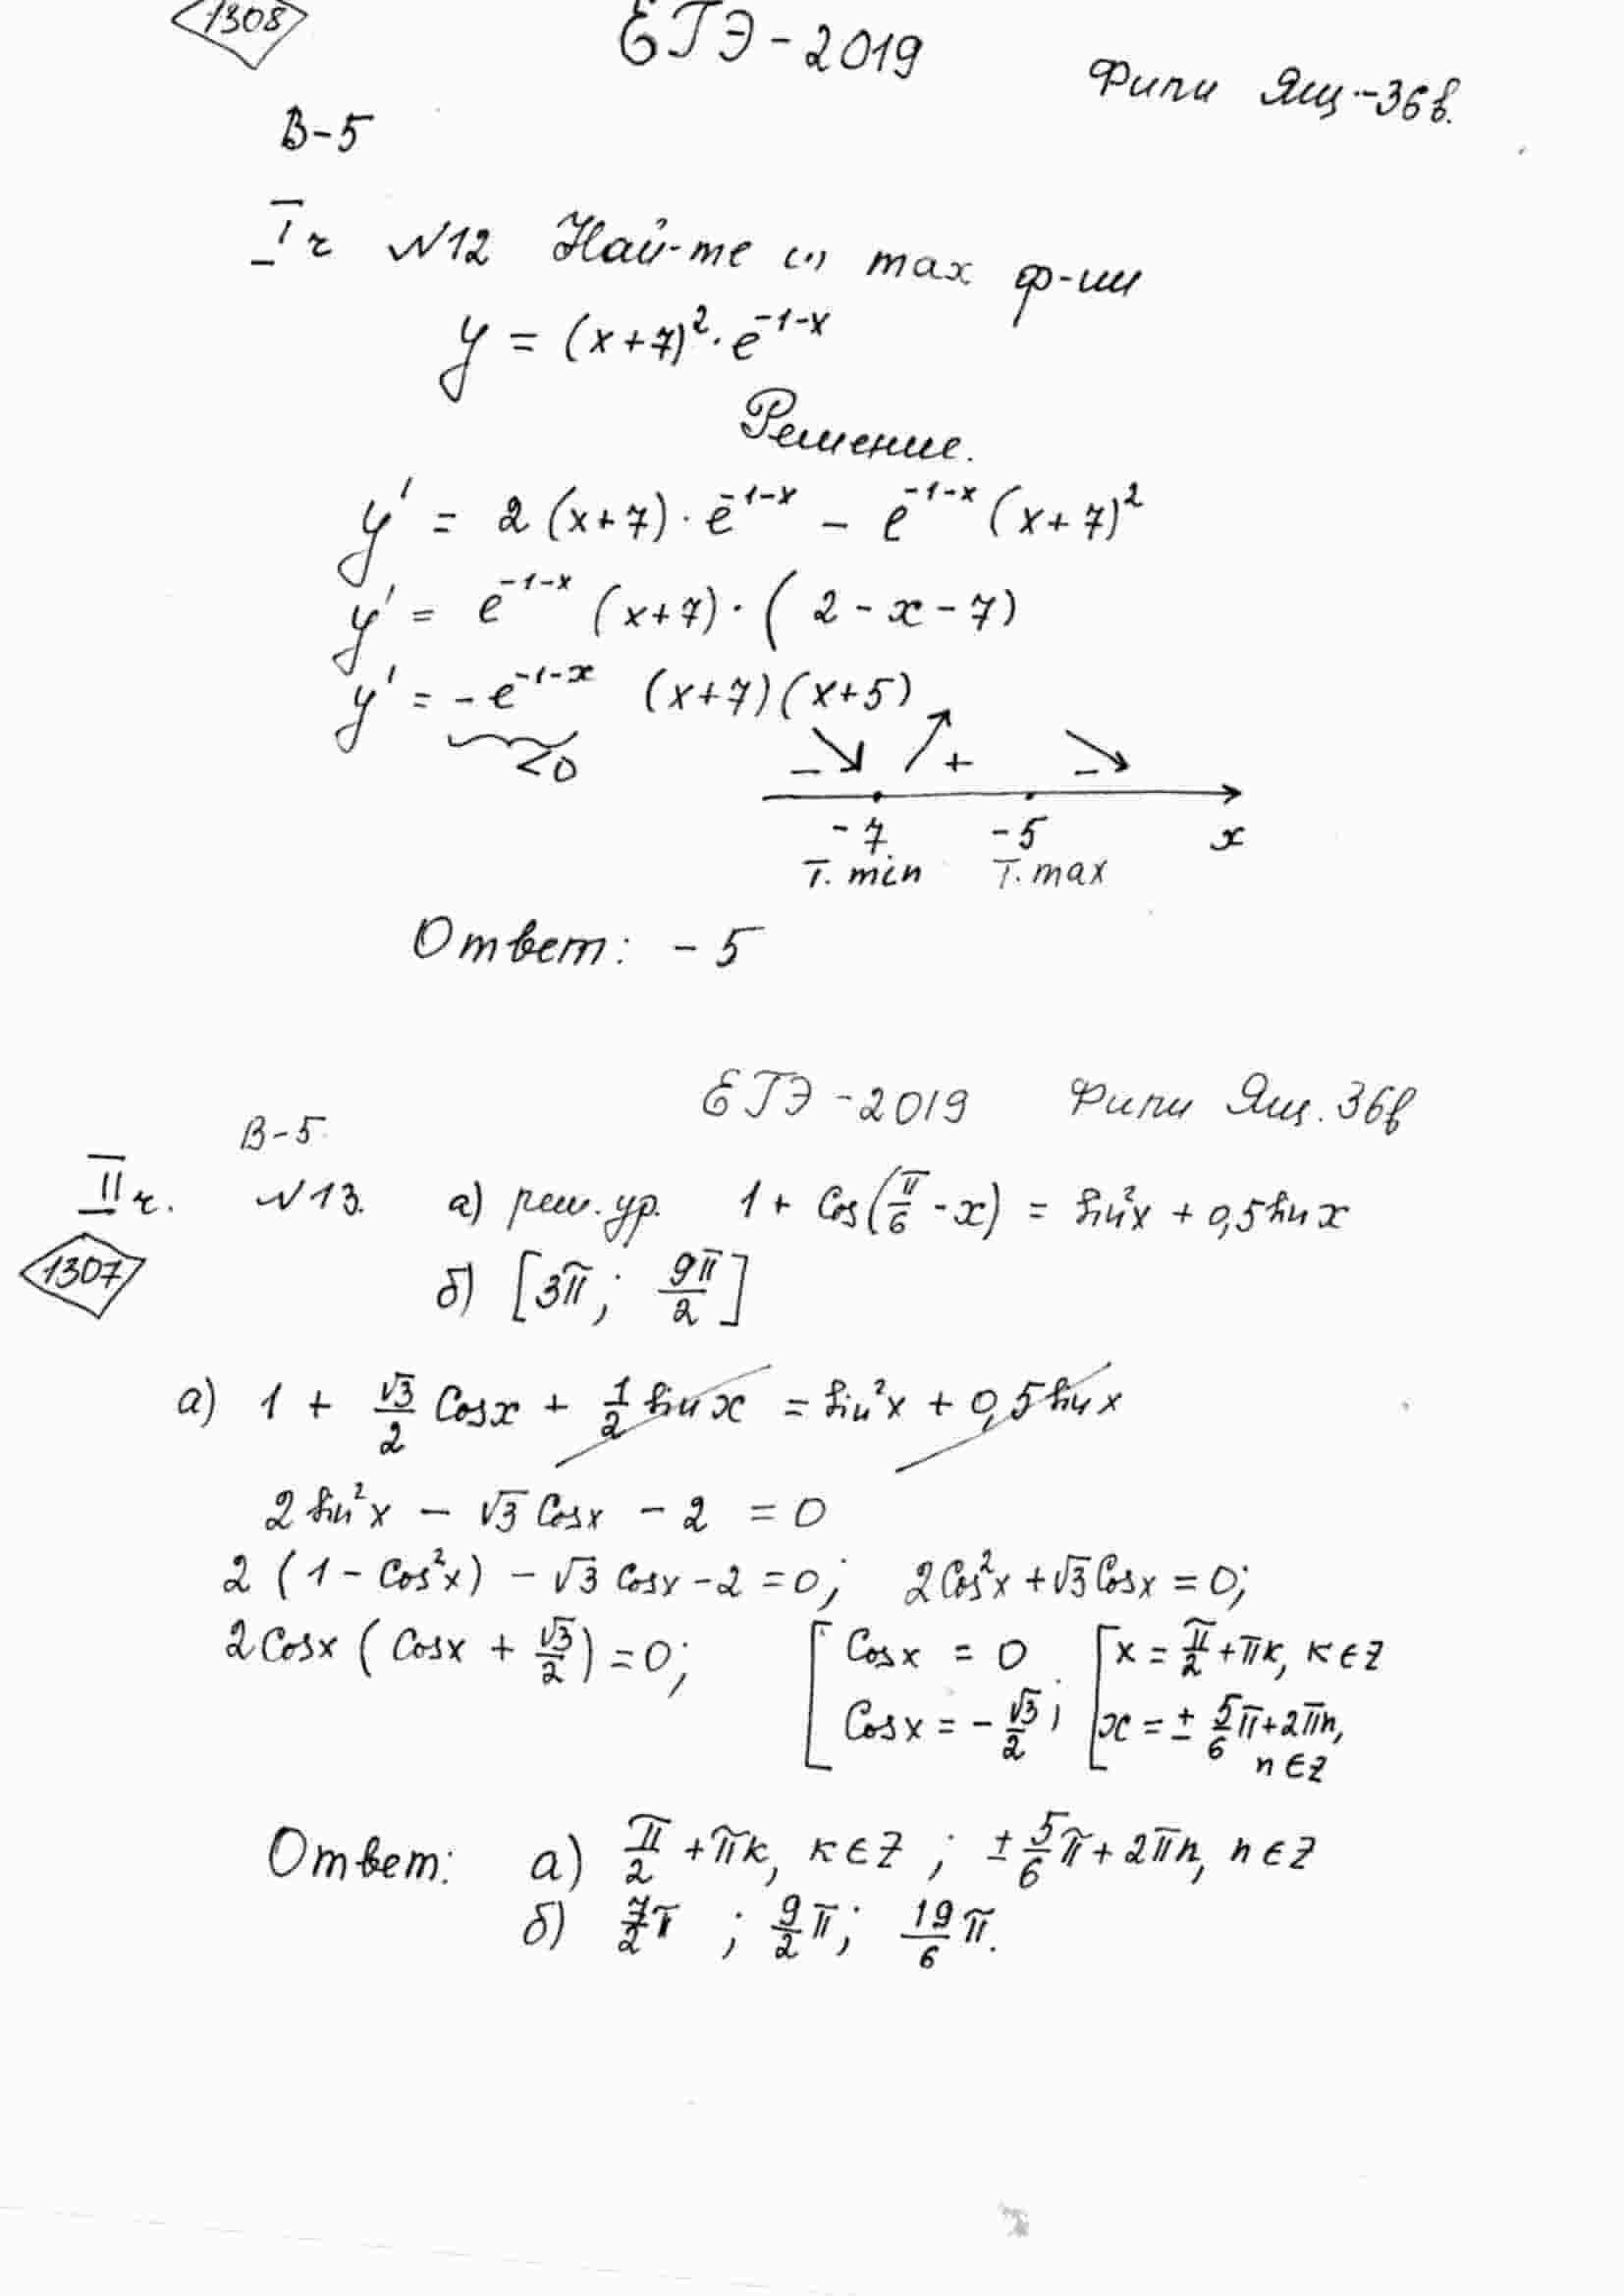 1308
ЕГЭ-2019
Фипи Ящ-36в.
В-5
I ч №12 Най-те (·) max ф-ии
y = (x+7)²·e^(-1-x)
Решение.
y' = 2(x+7)·e^(-1-x) - e^(-1-x)(x+7)²
y' = e^(-1-x)(x+7)·(2-x-7)
y' = -e^(-1-x) (x+7)(x+5)
<0
- + -
-7 -5 x
т. min т. max
Ответ: -5
ЕГЭ-2019 Фипи Ящ. 36в
В-5
II ч. №13. а) реш. ур. 1 + Cos(π/6 - x) = sin²x + 0,5sin x
1307
б) [3π; 9π/2]
а) 1 + √3/2 Cosx + 1/2 sin x = sin²x + 0,5 sin x
2 sin²x - √3 Cosx - 2 = 0
2(1 - Cos²x) - √3 Cosx - 2 = 0; 2Cos²x + √3 Cosx = 0;
2Cosx(Cosx + √3/2) = 0; [Cosx = 0 [x = π/2 + πk, k∈Z
Cosx = -√3/2; x = ± 5/6 π + 2πn,
n∈Z
Ответ: а) π/2 + πk, k∈Z; ± 5/6 π + 2πn, n∈Z
б) 7/2 π ; 9/2 π; 19/6 π.